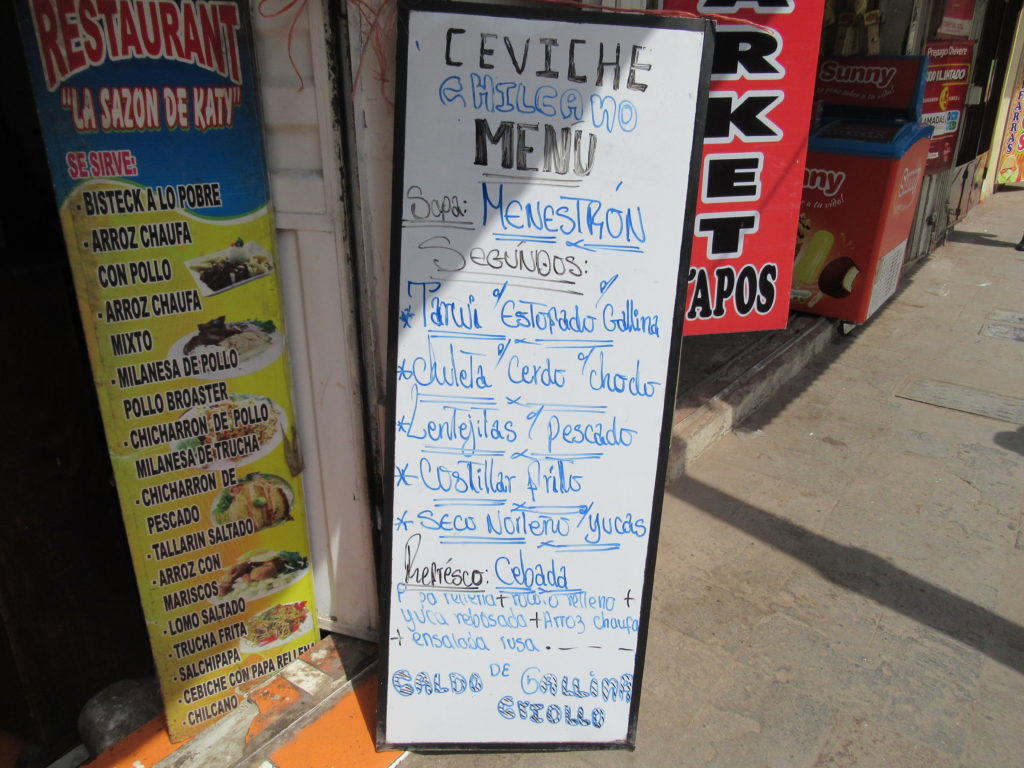 RESTAURANT
"LA SAZON DE KATY"
SE SIRVE:
- BISTECK A LO POBRE
- ARROZ CHAUFA
CON POLLO
- ARROZ CHAUFA
MIXTO
- MILANESA DE POLLO
POLLO BROASTER
- CHICHARRON DE POLLO
MILANESA DE TRUCHA
- CHICHARRON DE
PESCADO
- TALLARIN SALTADO
- ARROZ CON
MARISCOS
- LOMO SALTADO
- TRUCHA FRITA
- SALCHIPAPA
- CEBICHE CON PAPA RELLENA
- CHILCANO
CEVICHE
CHILCANO
MENU
Sopa: MENESTRÓN
SEGÚNDOS:
* Tarwi c/ Estofado c/ Gallina
* Chuleta c/ Cerdo c/ chodo
* Lentejitas c/ pescado
* Costillar frito
* Seco Norteño c/ yucas
Refrésco: Cebada
rellena + relleno +
yuca rebosado + Arroz chaufa
+ ensalada rusa.
CALDO DE GALLINA
CRIOLLO
ARKET
TAPOS
Sunny
nny
a tu vida!
Sunny